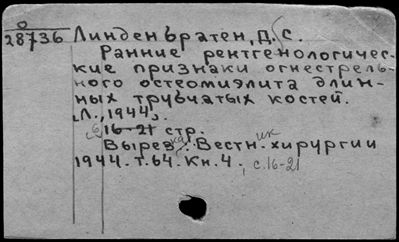 О
28736 Линденбратен, Д. С.
Ранние рентгенологичес-
кие признаки огнестрель-
ного остеомиэлита длин-
ных трубчатых костей.
Л., 1944.
16-21 стр.
Вырезка: Вестник хирургии
1944. т.64. Кн.4., с.16-21